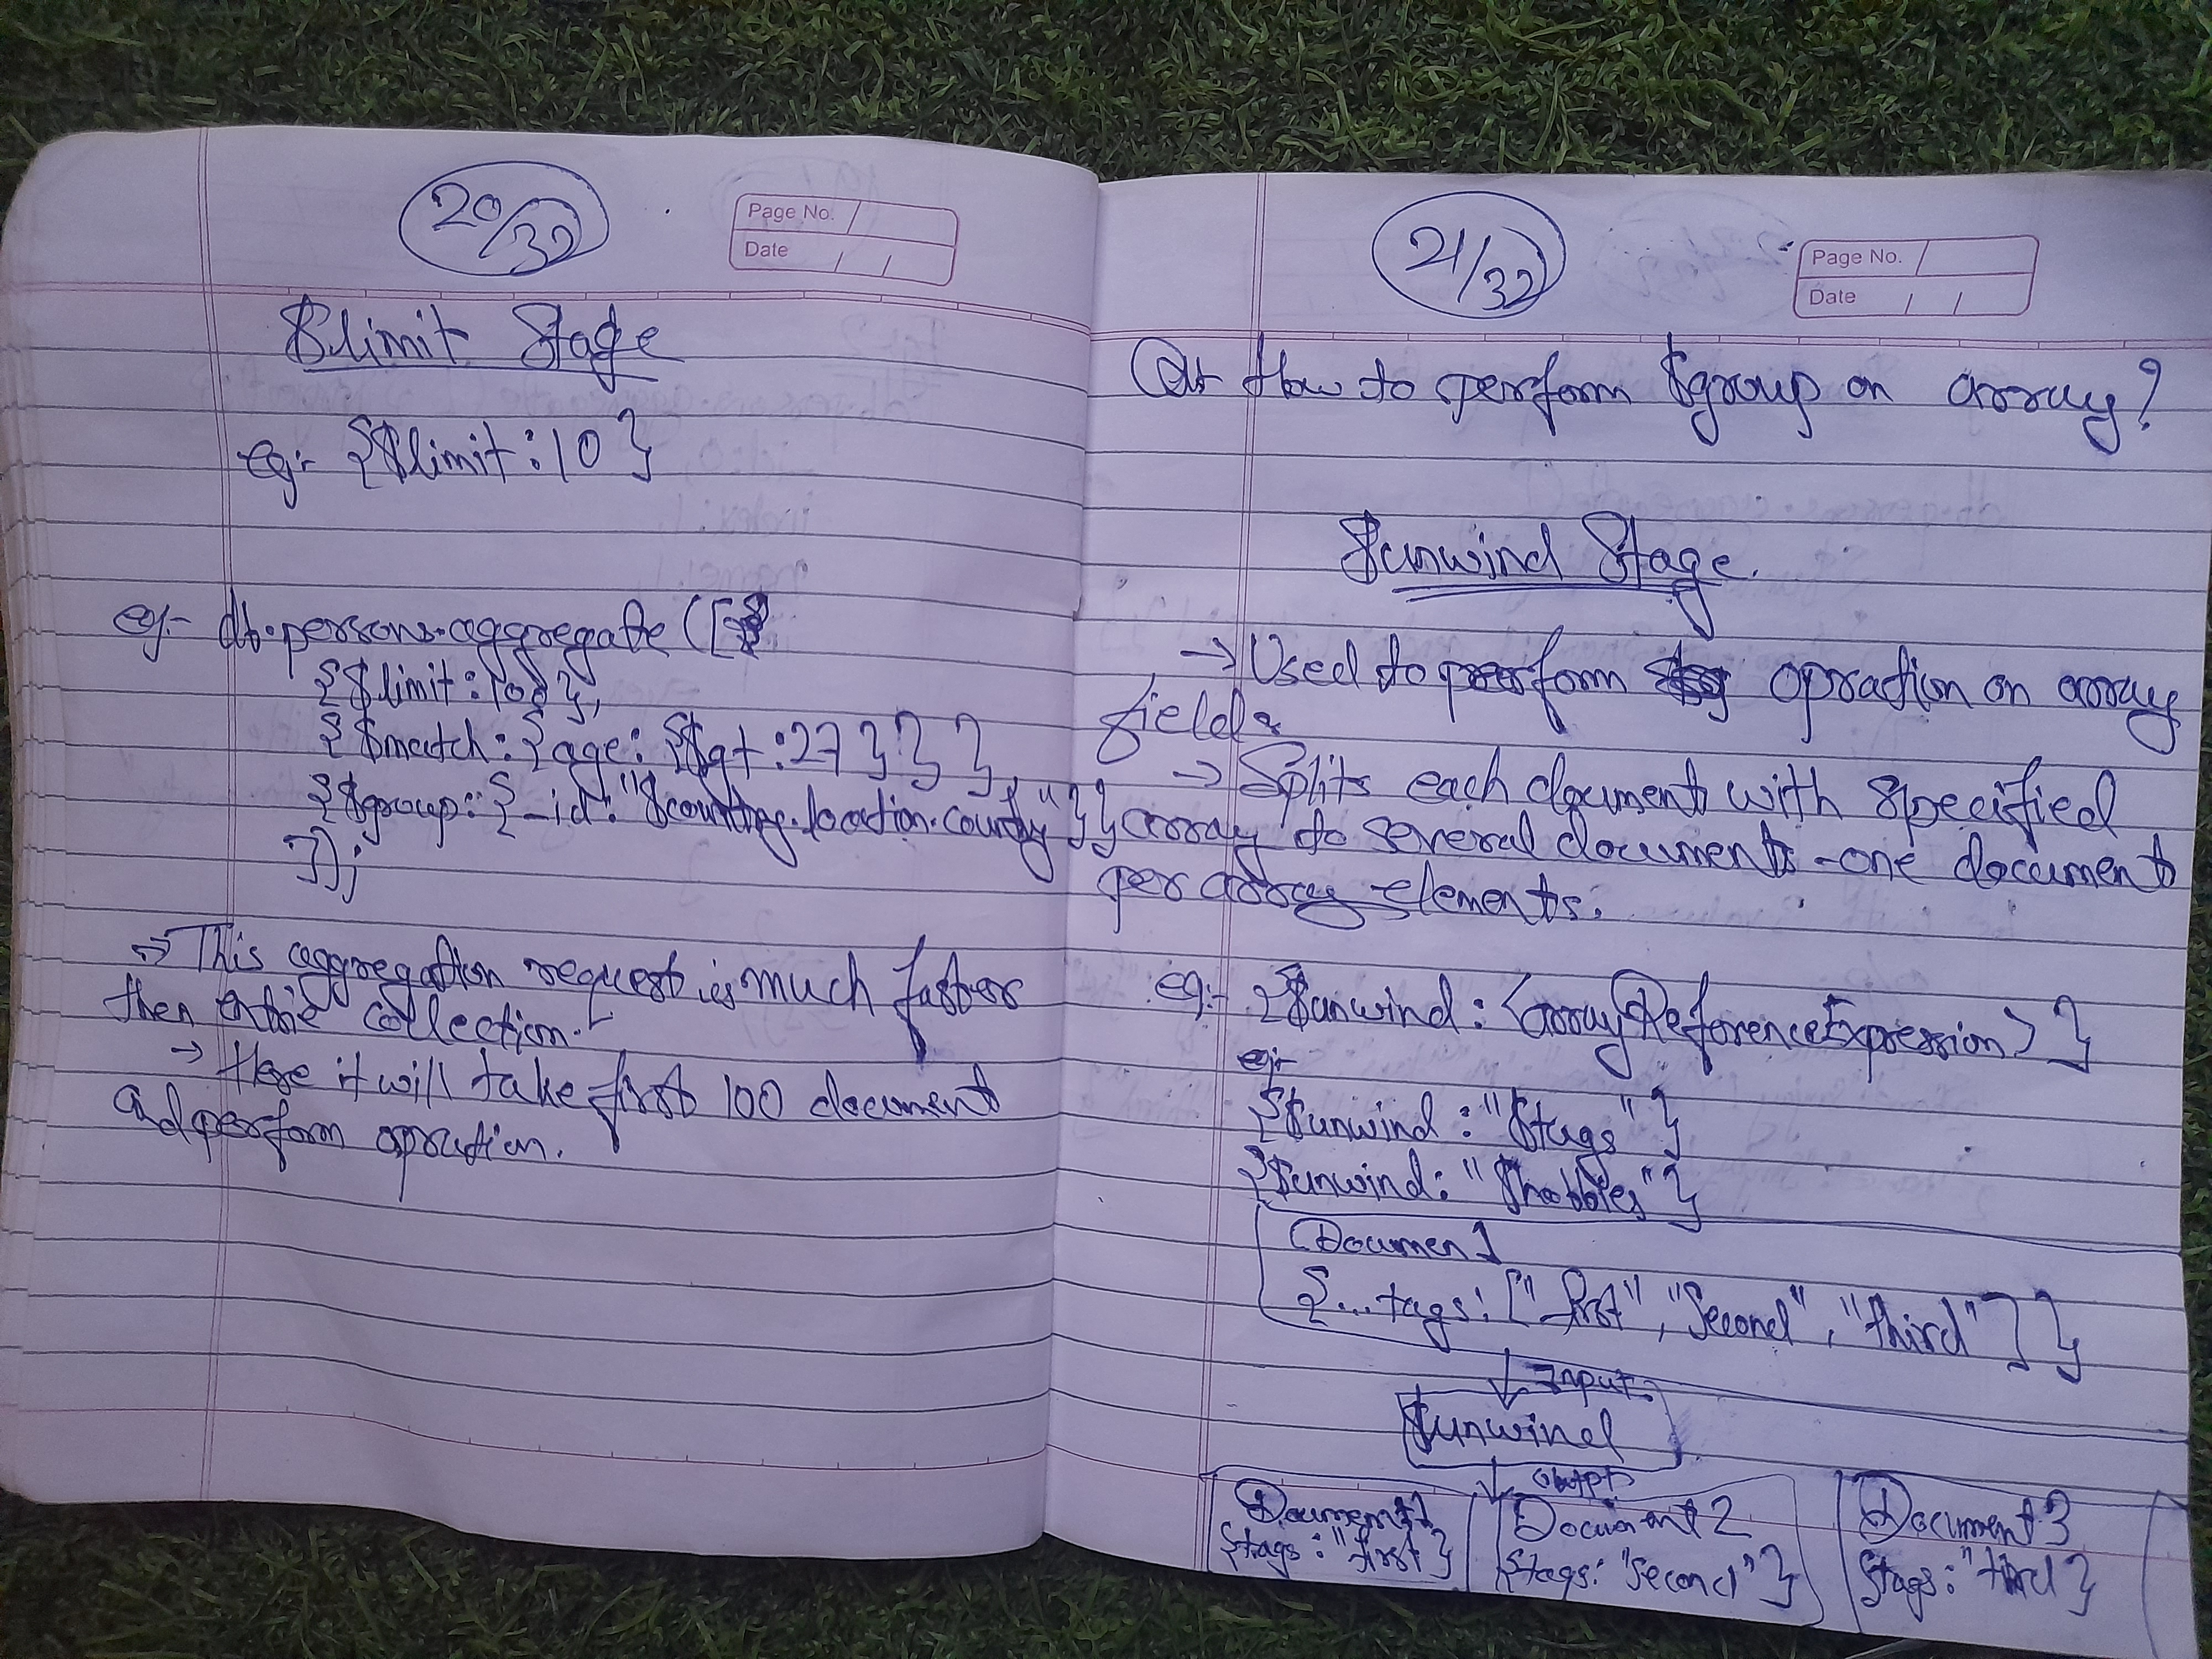 20/32
Page No.
Date / /
$limit Stage
eg:- {$limit : 10}
eg:- db.persons.aggregate([
{$limit : 100},
{$match : {age: {$gt : 27}}},
{$group : {_id: "$company.location.country"}}
]);
→ This aggregation request is much faster
then entire collection.
→ Here it will take first 100 document
and perform operation.
21/32
Page No.
Date / /
Q:- How to perform $group on array?
$unwind Stage.
→ Used to perform operation on array
fields.
→ Splits each document with specified
array to several documents - one document
per array elements.
eg:- {$unwind : <arrayReferenceExpression>}
eg:-
{$unwind : "$tags"}
{$unwind : "$hobbies"}
Document
{...tags: ["first", "Second", "third"]}
Input
$unwind
output
Document1 Document 2 Document 3
{tags : "first} {tags: "Second"} {tags : "third}